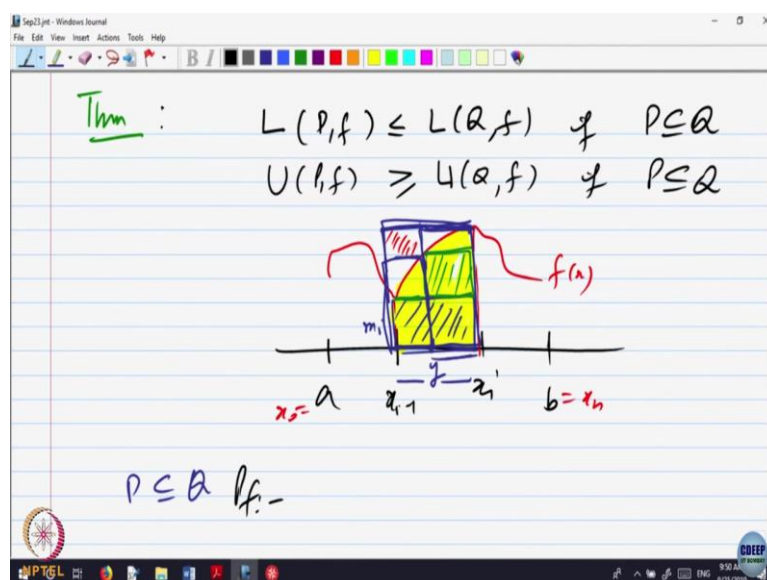 Sep23.jnt - Windows Journal
File Edit View Insert Actions Tools Help
B I
Thm :
L(P,f) ≤ L(Q,f) if P⊆Q
U(P,f) ≥ U(Q,f) if P⊆Q
f(x)
m_i
y
x_0= a x_{i-1} x_i b = x_n
P ⊆ Q Pf:-
NPTEL
CDEEP
IIT BOMBAY
ENG 9:50 AM